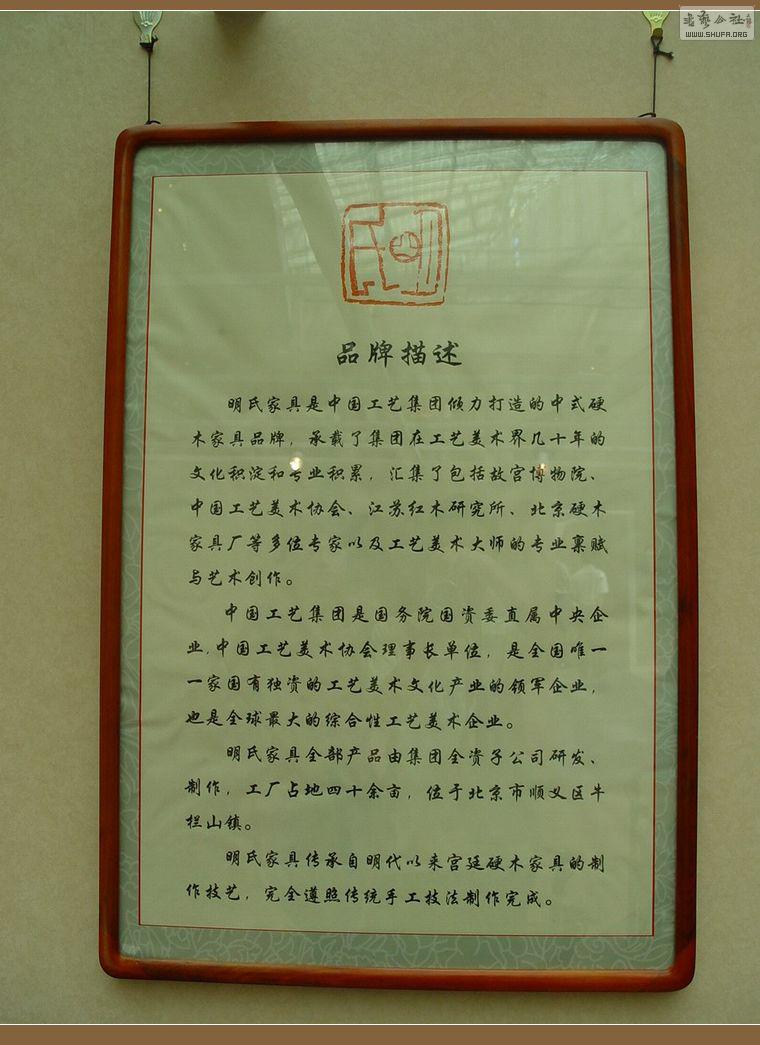 书艺公社
WWW.SHUFA.ORG
品牌描述
明氏家具是中国工艺集团倾力打造的中式硬
木家具品牌，承载了集团在工艺美术界几十年的
文化积淀和专业积累，汇集了包括故宫博物院、
中国工艺美术协会、江苏红木研究所、北京硬木
家具厂等多位专家以及工艺美术大师的专业禀赋
与艺术创作。
中国工艺集团是国务院国资委直属中央企
业,中国工艺美术协会理事长单位，是全国唯一
一家国有独资的工艺美术文化产业的领军企业，
也是全球最大的综合性工艺美术企业。
明氏家具全部产品由集团全资子公司研发、
制作，工厂占地四十余亩，位于北京市顺义区牛
栏山镇。
明氏家具传承自明代以来宫廷硬木家具的制
作技艺，完全遵照传统手工技法制作完成。